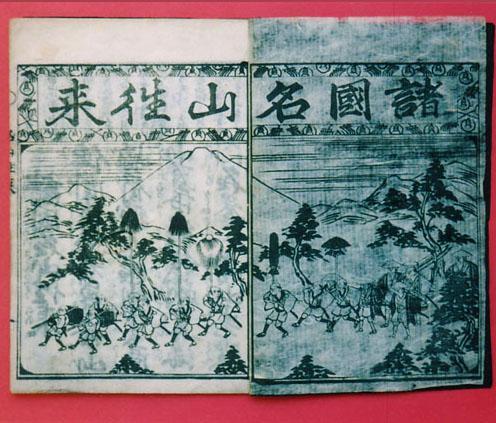 諸國名山徃来